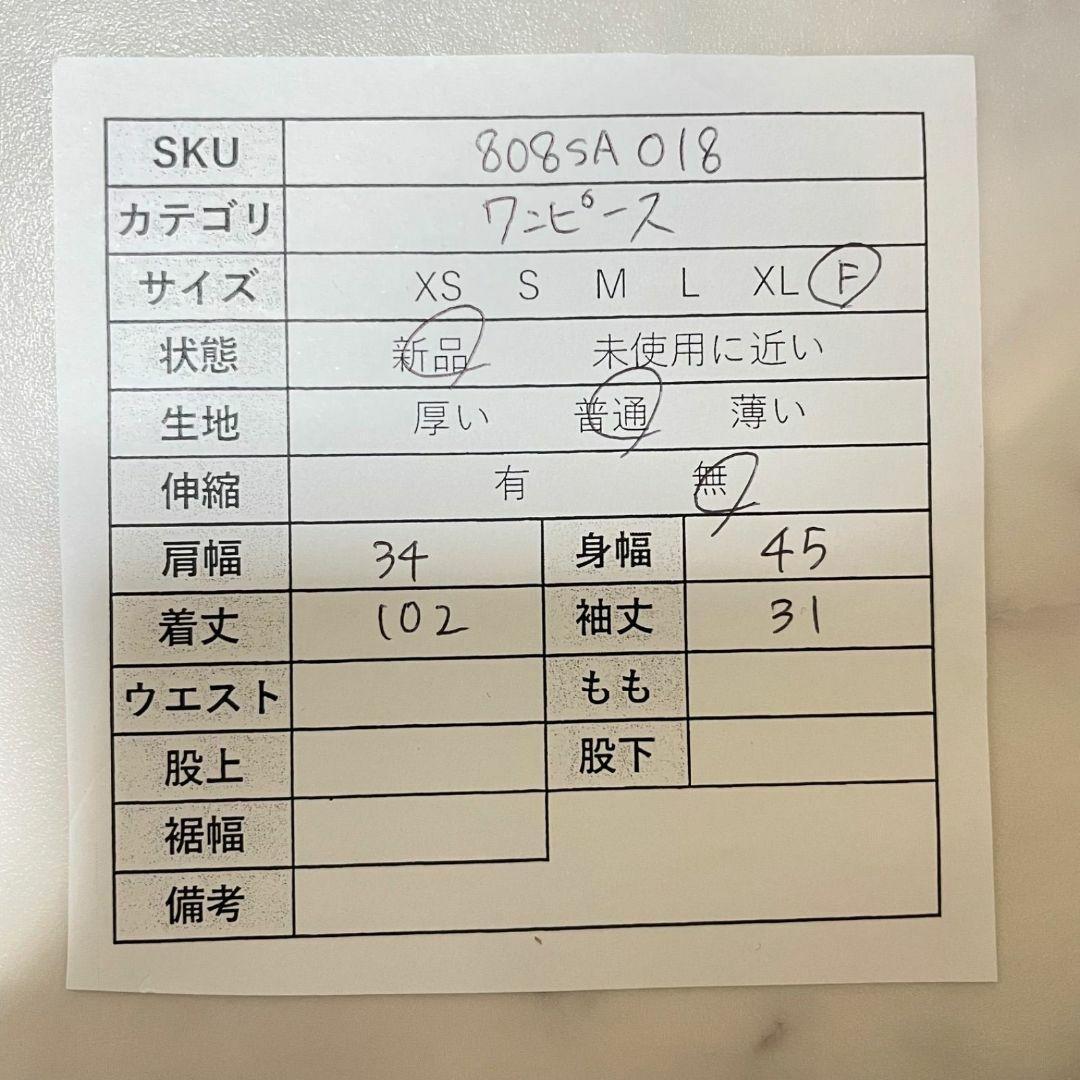 SKU 808SA018
カテゴリ ワンピース
サイズ XS S M L XL F
状態 新品 未使用に近い
生地 厚い 普通 薄い
伸縮 有 無
肩幅 34 身幅 45
着丈 102 袖丈 31
ウエスト もも
股上 股下
裾幅
備考